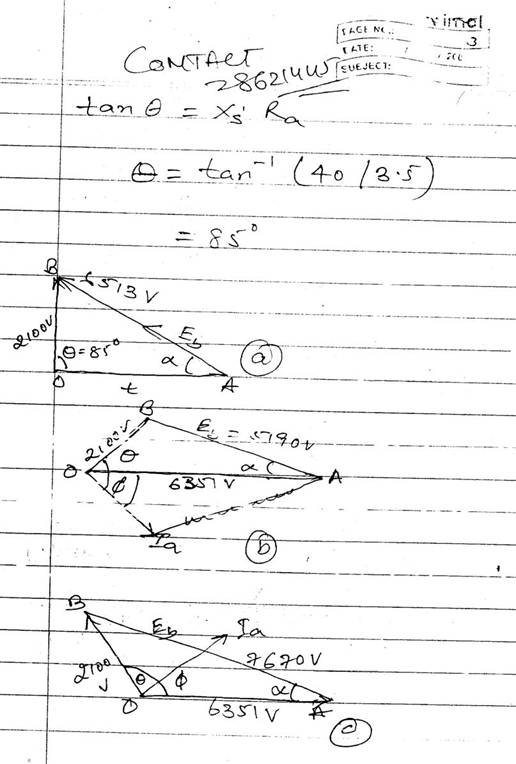 Vimal
PAGE NO.: 3
DATE:
SUBJECT:
CONTACT
tan θ = Xs: Ra
θ = tan⁻¹ (40 / 3.5)
= 85°
B
6513 V
2100V
Eb
θ=85°
α
a
O
t
A
B
2100V
Eb = 5790V
O
θ
α
A
ϕ
6351 V
Ia
b
B
Eb
Ia
7670 V
2100
V
θ
ϕ
α
O
6351 V
A
c